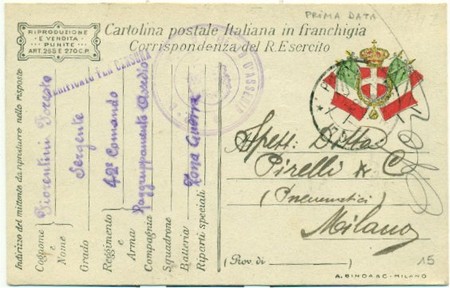 PRIMA DATA
RIPRODUZIONE
E VENDITA
PUNITE
ART. 255 E 270 C.P.
Cartolina postale Italiana in franchigia
Corrispondenza del R. Esercito
VERIFICATO PER CENSURA
D'ASSEDIO
Indirizzo del mittente da riprodurre nella risposta
Cognome e Nome Fiorentini Oreste
Grado Sergente
Reggimento e Arma 42º Comando
Compagnia Raggruppamento Assedio
Squadrone
Batteria
Riparti speciali Zona Guerra
Spett. Ditta
Pirelli & C
(Pneumatici)
Milano
(Prov. di )
15
A. BINDA & C. - MILANO